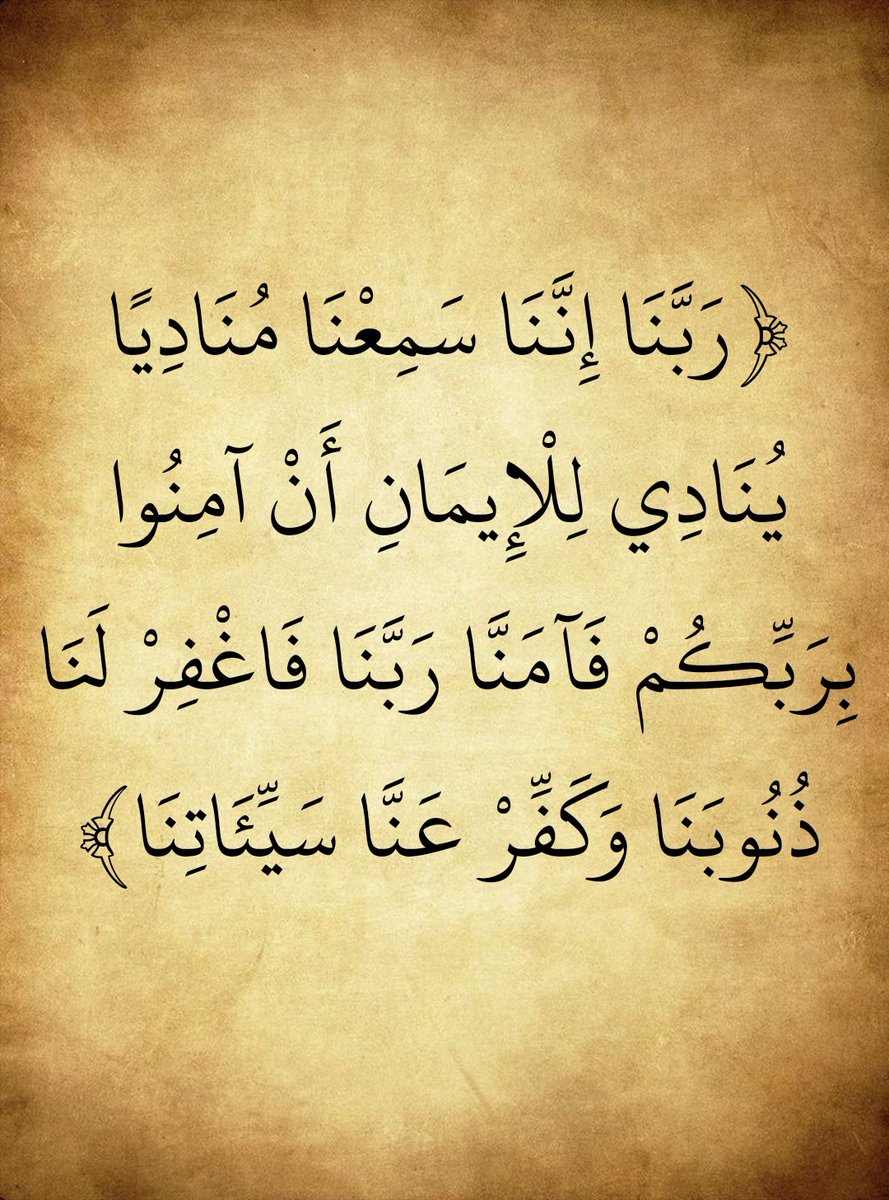 ﴿رَبَّنَا إِنَّنَا سَمِعْنَا مُنَادِيًا
يُنَادِي لِلْإِيمَانِ أَنْ آمِنُوا
بِرَبِّكُمْ فَآمَنَّا رَبَّنَا فَاغْفِرْ لَنَا
ذُنُوبَنَا وَكَفِّرْ عَنَّا سَيِّئَاتِنَا﴾